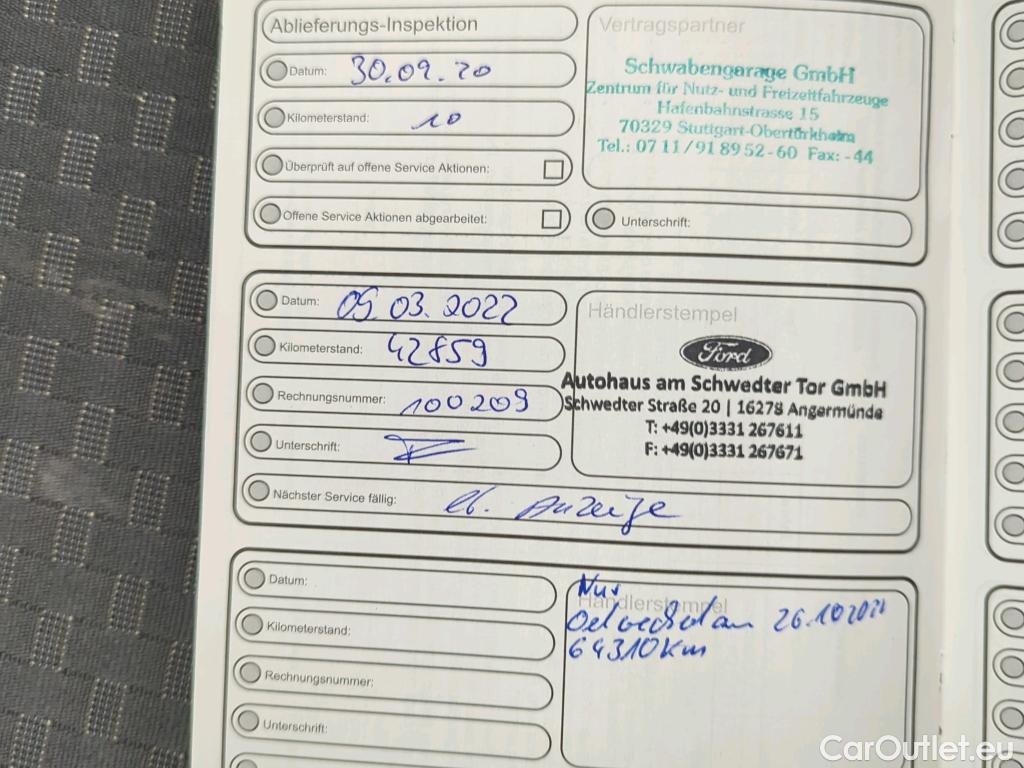 Ablieferungs-Inspektion
Datum: 30.09.20
Kilometerstand: 10
Überprüft auf offene Service Aktionen:
Offene Service Aktionen abgearbeitet:
Vertragspartner
Schwabengarage GmbH
Zentrum für Nutz- und Freizeitfahrzeuge
Hafenbahnstrasse 15
70329 Stuttgart-Obertürkheim
Tel.: 07 11/91 89 52-60 Fax: -44
Unterschrift:
Datum: 09.03.2022
Kilometerstand: 42859
Rechnungsnummer: 100209
Unterschrift:
Nächster Service fällig: lt. Anzeige
Händlerstempel
Ford
Autohaus am Schwedter Tor GmbH
Schwedter Straße 20 | 16278 Angermünde
T: +49(0)3331 267611
F: +49(0)3331 267671
Datum:
Kilometerstand:
Rechnungsnummer:
Unterschrift:
Händlerstempel
Nur
am 26.10
64310 Km
CarOutlet.eu